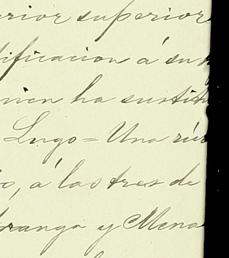 rior superior
dificacion á su
uien ha sustitu
Lugo = Una rú
o, á las tres de
aranga y Mena